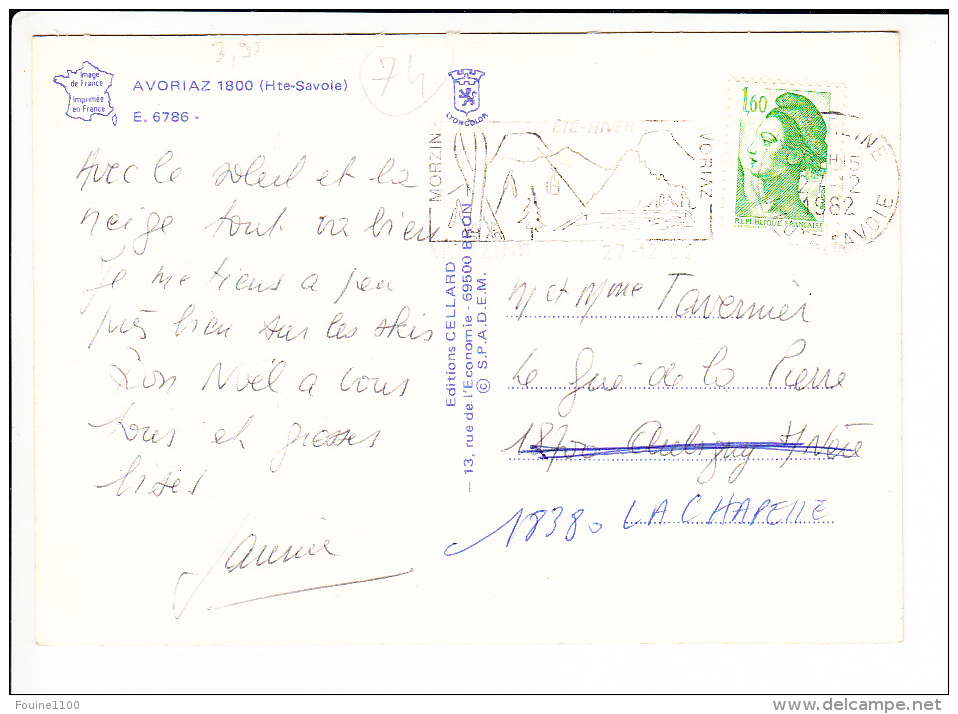 3,95
74
Image
de France
Imprimée
en France
AVORIAZ 1800 (Hte-Savoie)
E. 6786 -
LYONCOLOR
Avec le soleil et la
neige tout va bien
Je me tiens a peu
près bien sur les skis
Bon Noël a vous
tous et grosses
bises
Jannie
Editions CELLARD
— 13, rue de l'Economie - 69500 BRON —
© S.P.A.D.E.M.
MORZINE
ÉTÉ-HIVER
AVORIAZ
27-12-82
1,60
REPUBLIQUE FRANÇAISE
27-12
1982
SAVOIE
M et Mme Tavernier
Le Gué de la Pierre
18700 Aubigny s/Nère
18380 LA CHAPELLE
Fouine1100
delcampe.net